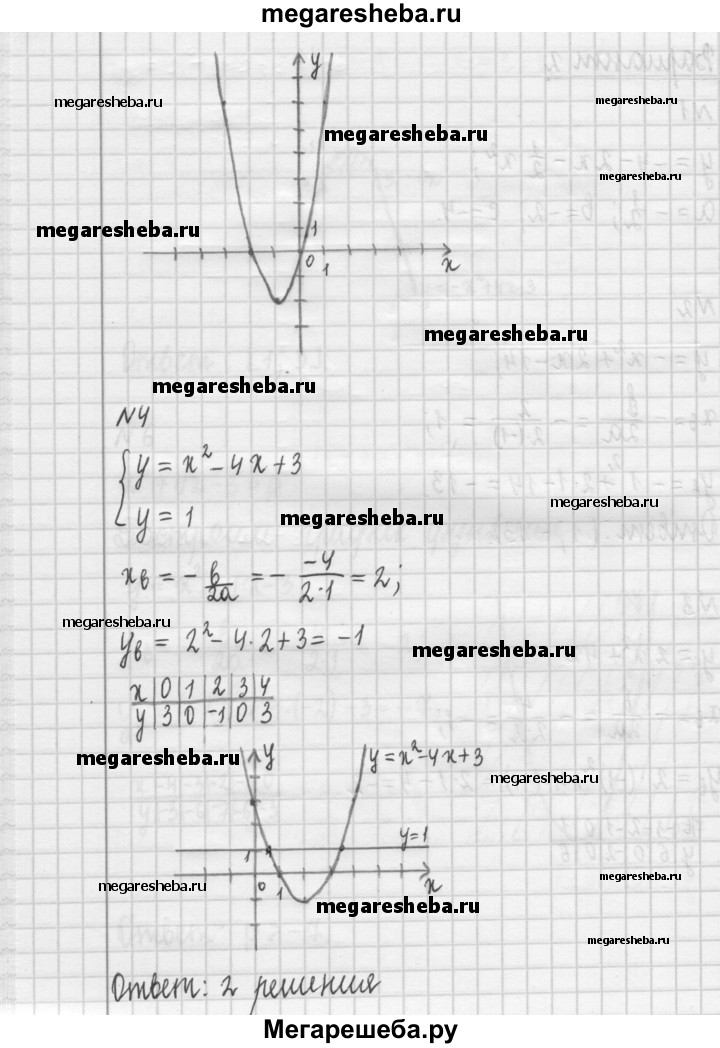 megaresheba.ru
y
megaresheba.ru
megaresheba.ru
megaresheba.ru
megaresheba.ru
megaresheba.ru
1
0
1
x
megaresheba.ru
megaresheba.ru
N4
{ y = x² - 4x + 3
y = 1
megaresheba.ru
megaresheba.ru
xв = - в/2a = - -4/2·1 = 2;
megaresheba.ru
yв = 2² - 4·2 + 3 = -1
megaresheba.ru
x | 0 | 1 | 2 | 3 | 4
y | 3 | 0 | -1 | 0 | 3
megaresheba.ru
y
y = x² - 4x + 3
megaresheba.ru
y=1
1
0
1
x
megaresheba.ru
megaresheba.ru
megaresheba.ru
megaresheba.ru
Ответ: 2 решения
Мегарешеба.ру